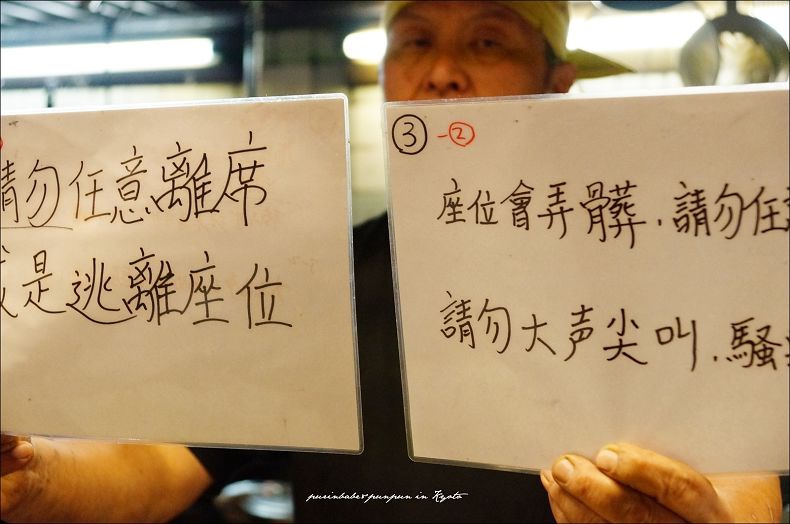 請勿任意離席
或是逃離座位
③-②
座位會弄髒.請勿任意
請勿大声尖叫.騷
purinbabe & punpun in Kyoto